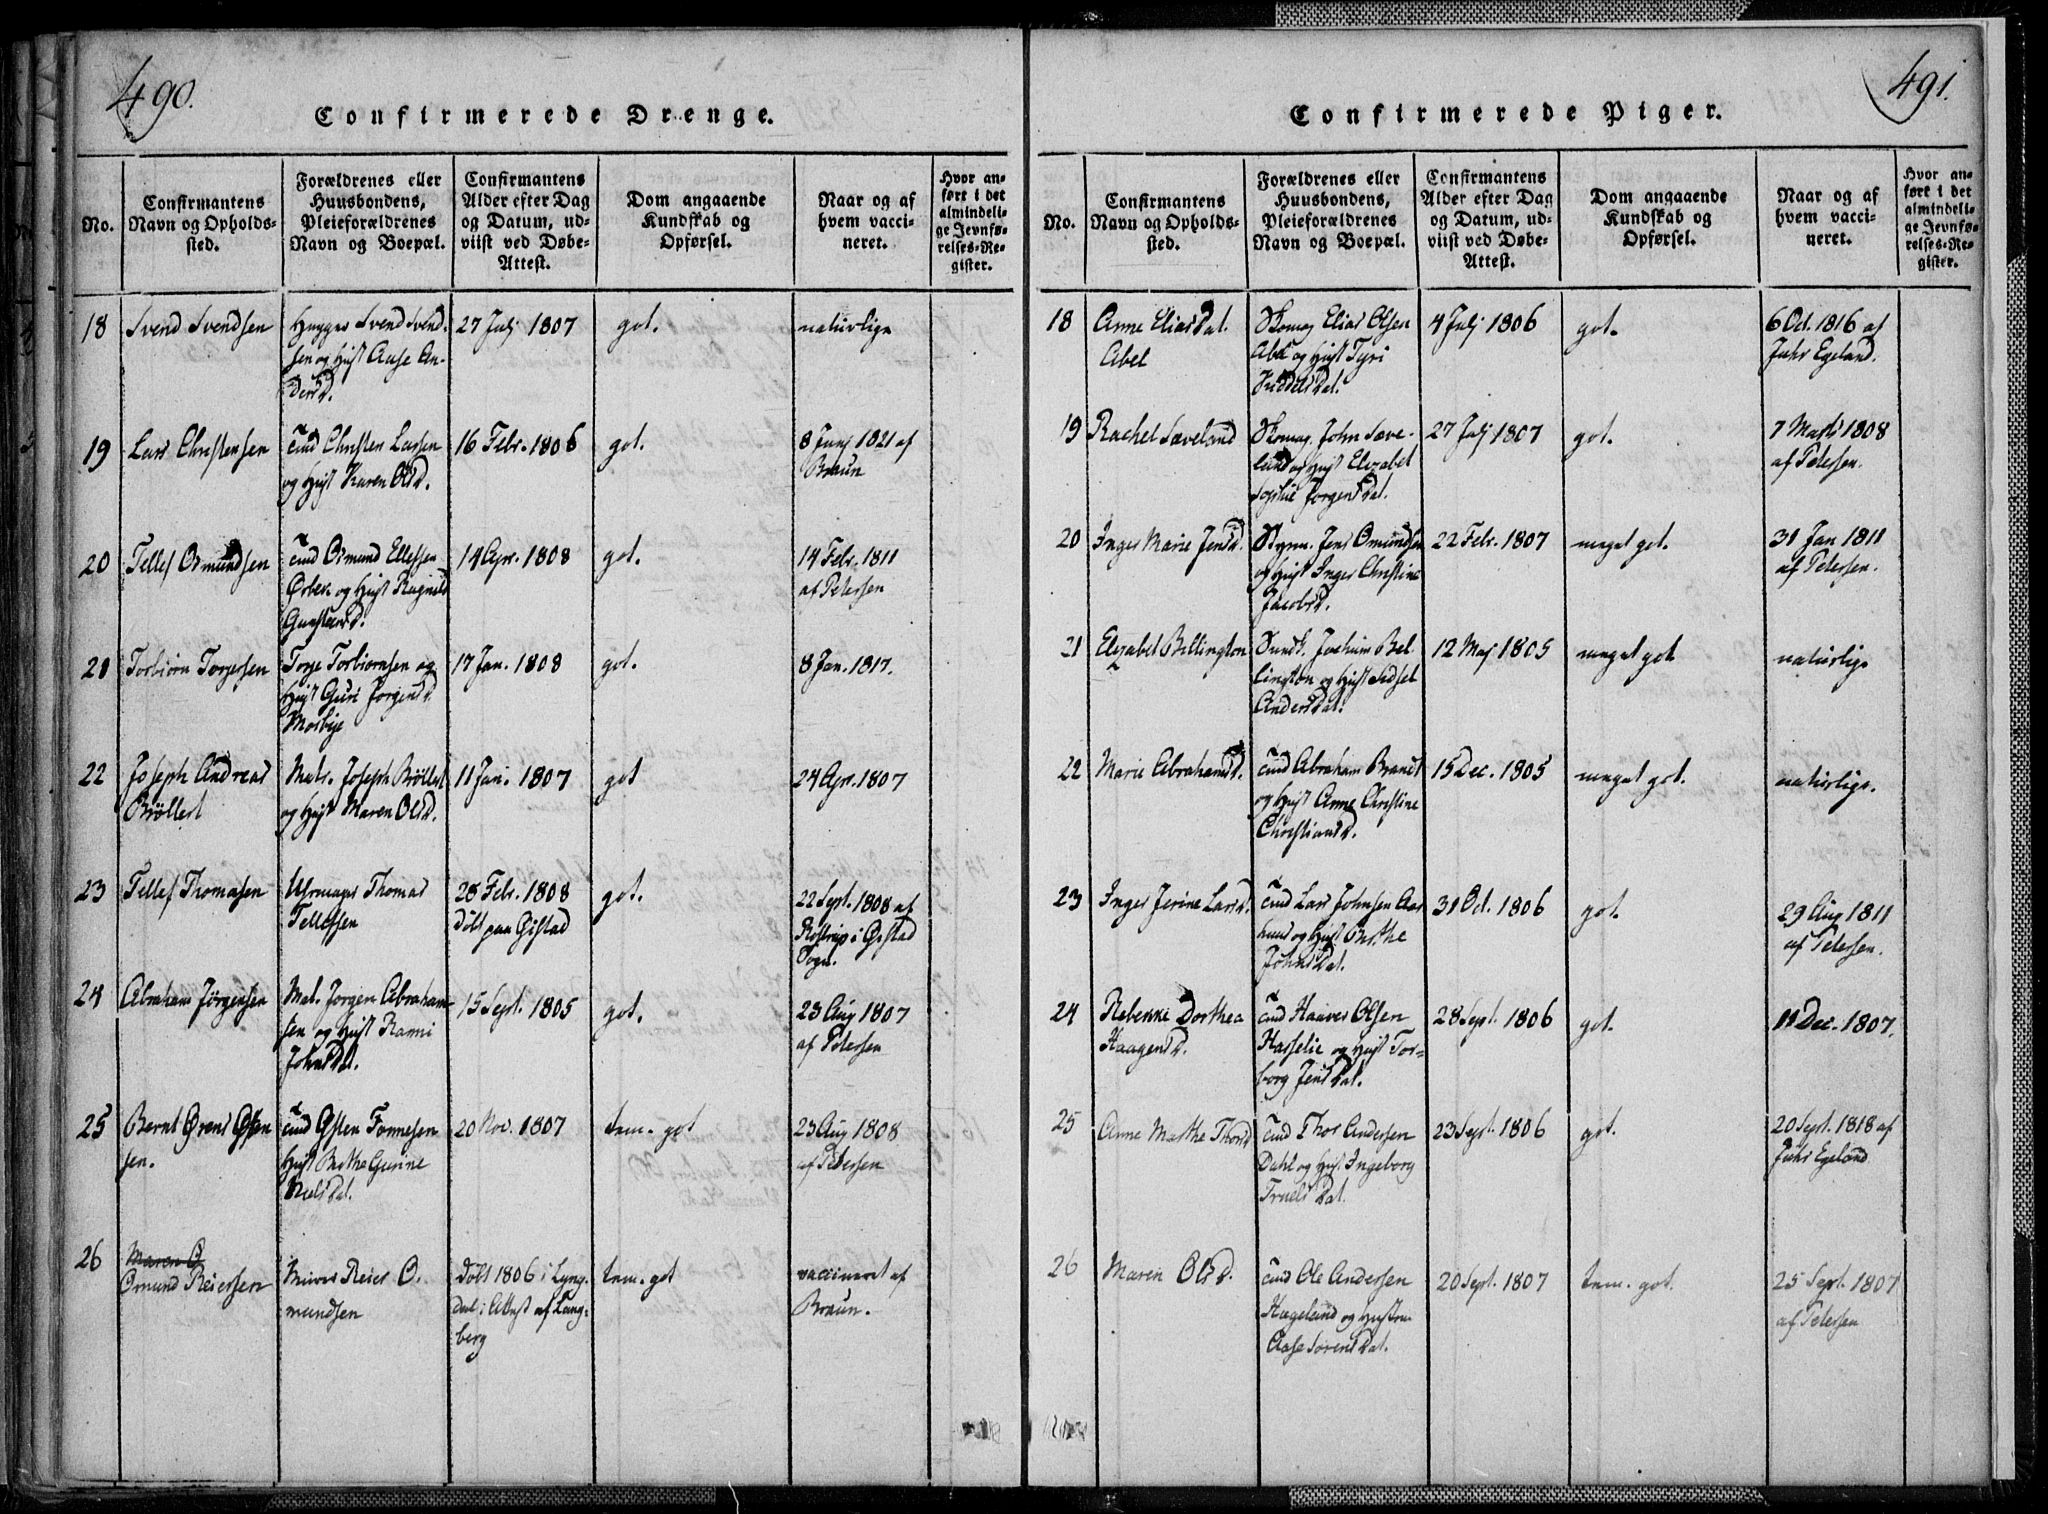 490.
Confirmerede Drenge.
No.
Confirmantens
Navn og Opholds-
sted.
Forældrenes eller
Huusbondens,
Pleieforældrenes
Navn og Boepæl.
Confirmantens
Alder efter Dag
og Datum, ud-
viist ved Døbe-
Attest.
Dom angaaende
Kundskab og
Opførsel.
Naar og af
hvem vacci-
neret.
Hvor an-
ført i det
almindeli-
ge Jevnfø-
relses-Re-
gister.
18
Svend Svendsen
Svend Svend-
sen og Hust Aase An-
dersd.
27 Julj 1807
got.
naturlige
19
Lars Christensen
Christen Larsen
og Hust Karen Olsd.
16 Febr. 1806
got.
8 Junj 1821 af
Braun
20
Tellef Osmundsen
Osmund Ellefsen
og Hust
14 Apr. 1808
got.
14 Febr. 1811
af Petersen
21
Torbiørn Torjersen
Torje Torbiornsen og
Hust Guri Jorgensd
Mosbye
17 Jan. 1808
got.
8 Jan. 1817.
22
Joseph Andreas
Bröllert
Matr. Joseph Bröllert
og Hust Maren Olsd.
11 Jan. 1807
got
24 Apr. 1807
23
Tellef Thomasen
Uhrmager Thomas
Tellefsen
28 Febr. 1808
döbt paa
got.
22 Sept. 1808 af
i
Sogn.
24
Abraham Jörgensen
Mat. Jorgen Abraham-
sen og Hust
Johnsdat.
15 Sept. 1805
got.
23 Aug 1807
af Petersen
25
Bernt
sen.
Tönnesen
Hust Berthe Gurine
Nielsdat.
20 Nov. 1807
tem. got
23 Aug 1808
af Petersen
26
Maren O
Omund Reiersen
Reier O.
mundsen
döbt 1806 i Lyng-
dal i Attest af Lang-
berg
tem. got
vaccineret af
Braun.
491.
Confirmerede Piger.
No.
Confirmantens
Navn og Opholds-
sted.
Forældrenes eller
Huusbondens,
Pleieforældrenes
Navn og Boepæl.
Confirmantens
Alder efter Dag
og Datum, ud-
viist ved Døbe-
Attest.
Dom angaaende
Kundskab og
Opførsel.
Naar og af
hvem vacci-
neret.
Hvor an-
ført i det
almindeli-
ge Jevnfø-
relses-Re-
gister.
18
Anne Eliasdat.
Abel
Skomag Elias Olsen
Abel og Hust Tyri
Kiddelsdat.
4 Julj 1806
got.
6 Oct. 1816 af
Juhr Egeland.
19
Rachel Sæveland
Skomag. John Sæve-
land og Hust Elizabet
Sophie Jorgensdat.
27 Julj 1807
got.
7 Marts 1808
af Petersen.
20
Inger Marie Jensd.
Styrm. Jens Omundsen
og Hust Inger Christine
Jacobsd.
22 Febr. 1807
meget got.
31 Jan 1811
af Petersen.
21
Elizabet Billington
Jochum Bel-
lington og Hust Sidsel
Andersdat.
12 Maj 1805
meget got
naturlige
22
Marie Abrahamsd.
Abraham Brandt
og Hust Anne Christine
Christiansd.
15 Dec. 1805
meget got.
naturlige.
23
Inger Jerine Larsd.
Lars Johnsen Aar
huus og Hust Berthe
Johnsdat.
31 Oct. 1806
got.
29 Aug 1811
af Petersen.
24
Rebekke Dorthea
Haagensd.
Haaver Olsen
Hasselie og Hust Tor-
borg Jensdat.
28 Sept. 1806
got.
11 Dec. 1807.
25
Anne Marthe Thorsd
Thor Andersen
Dahl og Hust Ingeborg
Truels dat.
23 Sept. 1806
got.
20 Sept. 1818 af
Juhr Egeland
26
Maren Olsd.
Ole Andersen
Hægeland og Hustru
Aase Sorensdat.
20 Sept. 1807
tem. got.
25 Sept. 1807
af Petersen